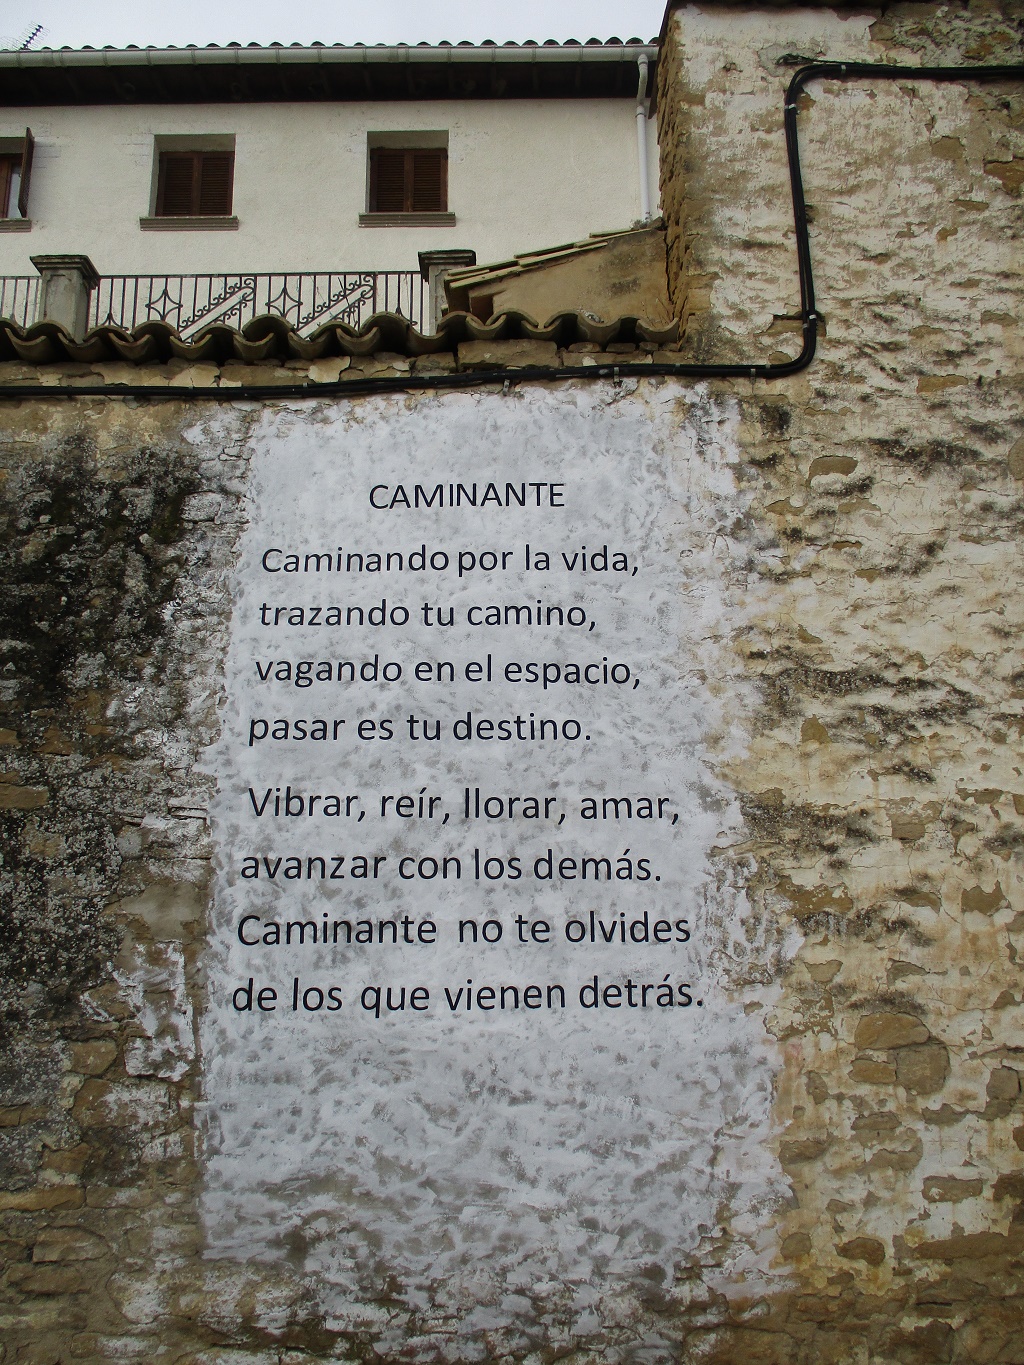 CAMINANTE
Caminando por la vida,
trazando tu camino,
vagando en el espacio,
pasar es tu destino.
Vibrar, reír, llorar, amar,
avanzar con los demás.
Caminante no te olvides
de los que vienen detrás.